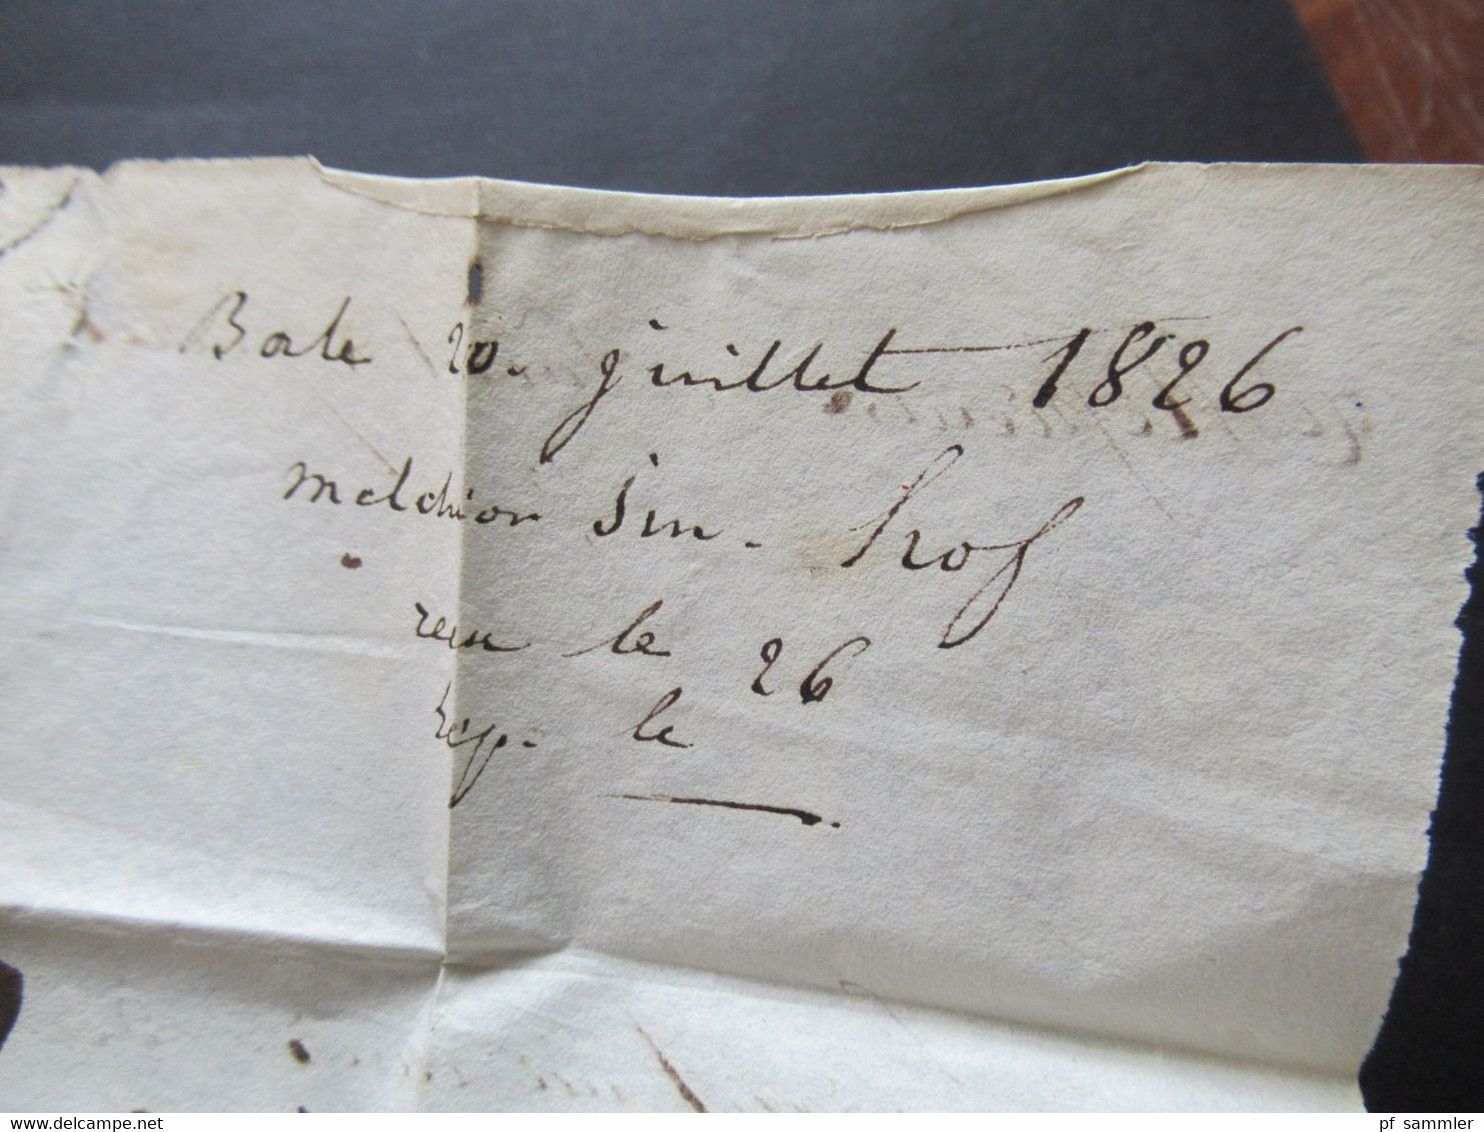 Bale 20. juillet 1826
Melchior Im. hof
recu le 26
Rep. le
www.delcampe.net
pf_sammler